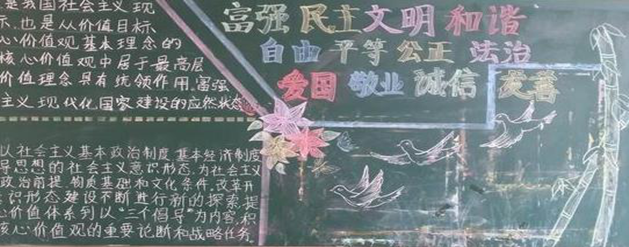 是我国社会主义现
示,也是从价值目标
心价值观基本理念的
核心价值观中居于最高层
价值理念具有统领作用。富强
主义现代化国家建设的应然状态
以社会主义基本政治制度基本经济制度
导思想的社会主义意识形态,为社会主义
政治前提,物质基础和文化条件。改革开
识形态建设不断进行新的探索,提
心价值体系到以“三个倡导”为内容,积
核心价值观的重要论断和战略任务。
富强 民主 文明 和谐
自由 平等 公正 法治
爱国 敬业 诚信 友善